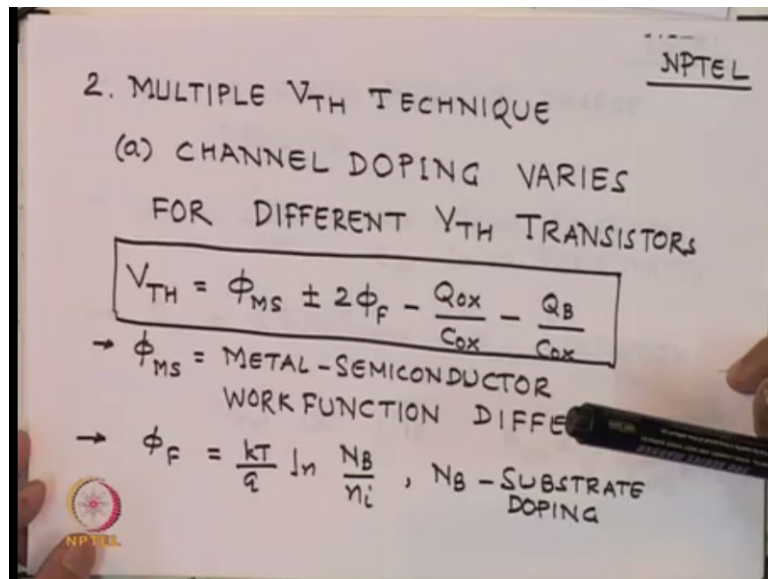 NPTEL
2. MULTIPLE VTH TECHNIQUE
(a) CHANNEL DOPING VARIES
FOR DIFFERENT VTH TRANSISTORS
VTH = ϕMS ± 2ϕF - QOX/COX - QB/COX
→ ϕMS = METAL-SEMICONDUCTOR
WORKFUNCTION DIFFE
→ ϕF = kT/q ln NB/ni , NB - SUBSTRATE
DOPING
NPTEL